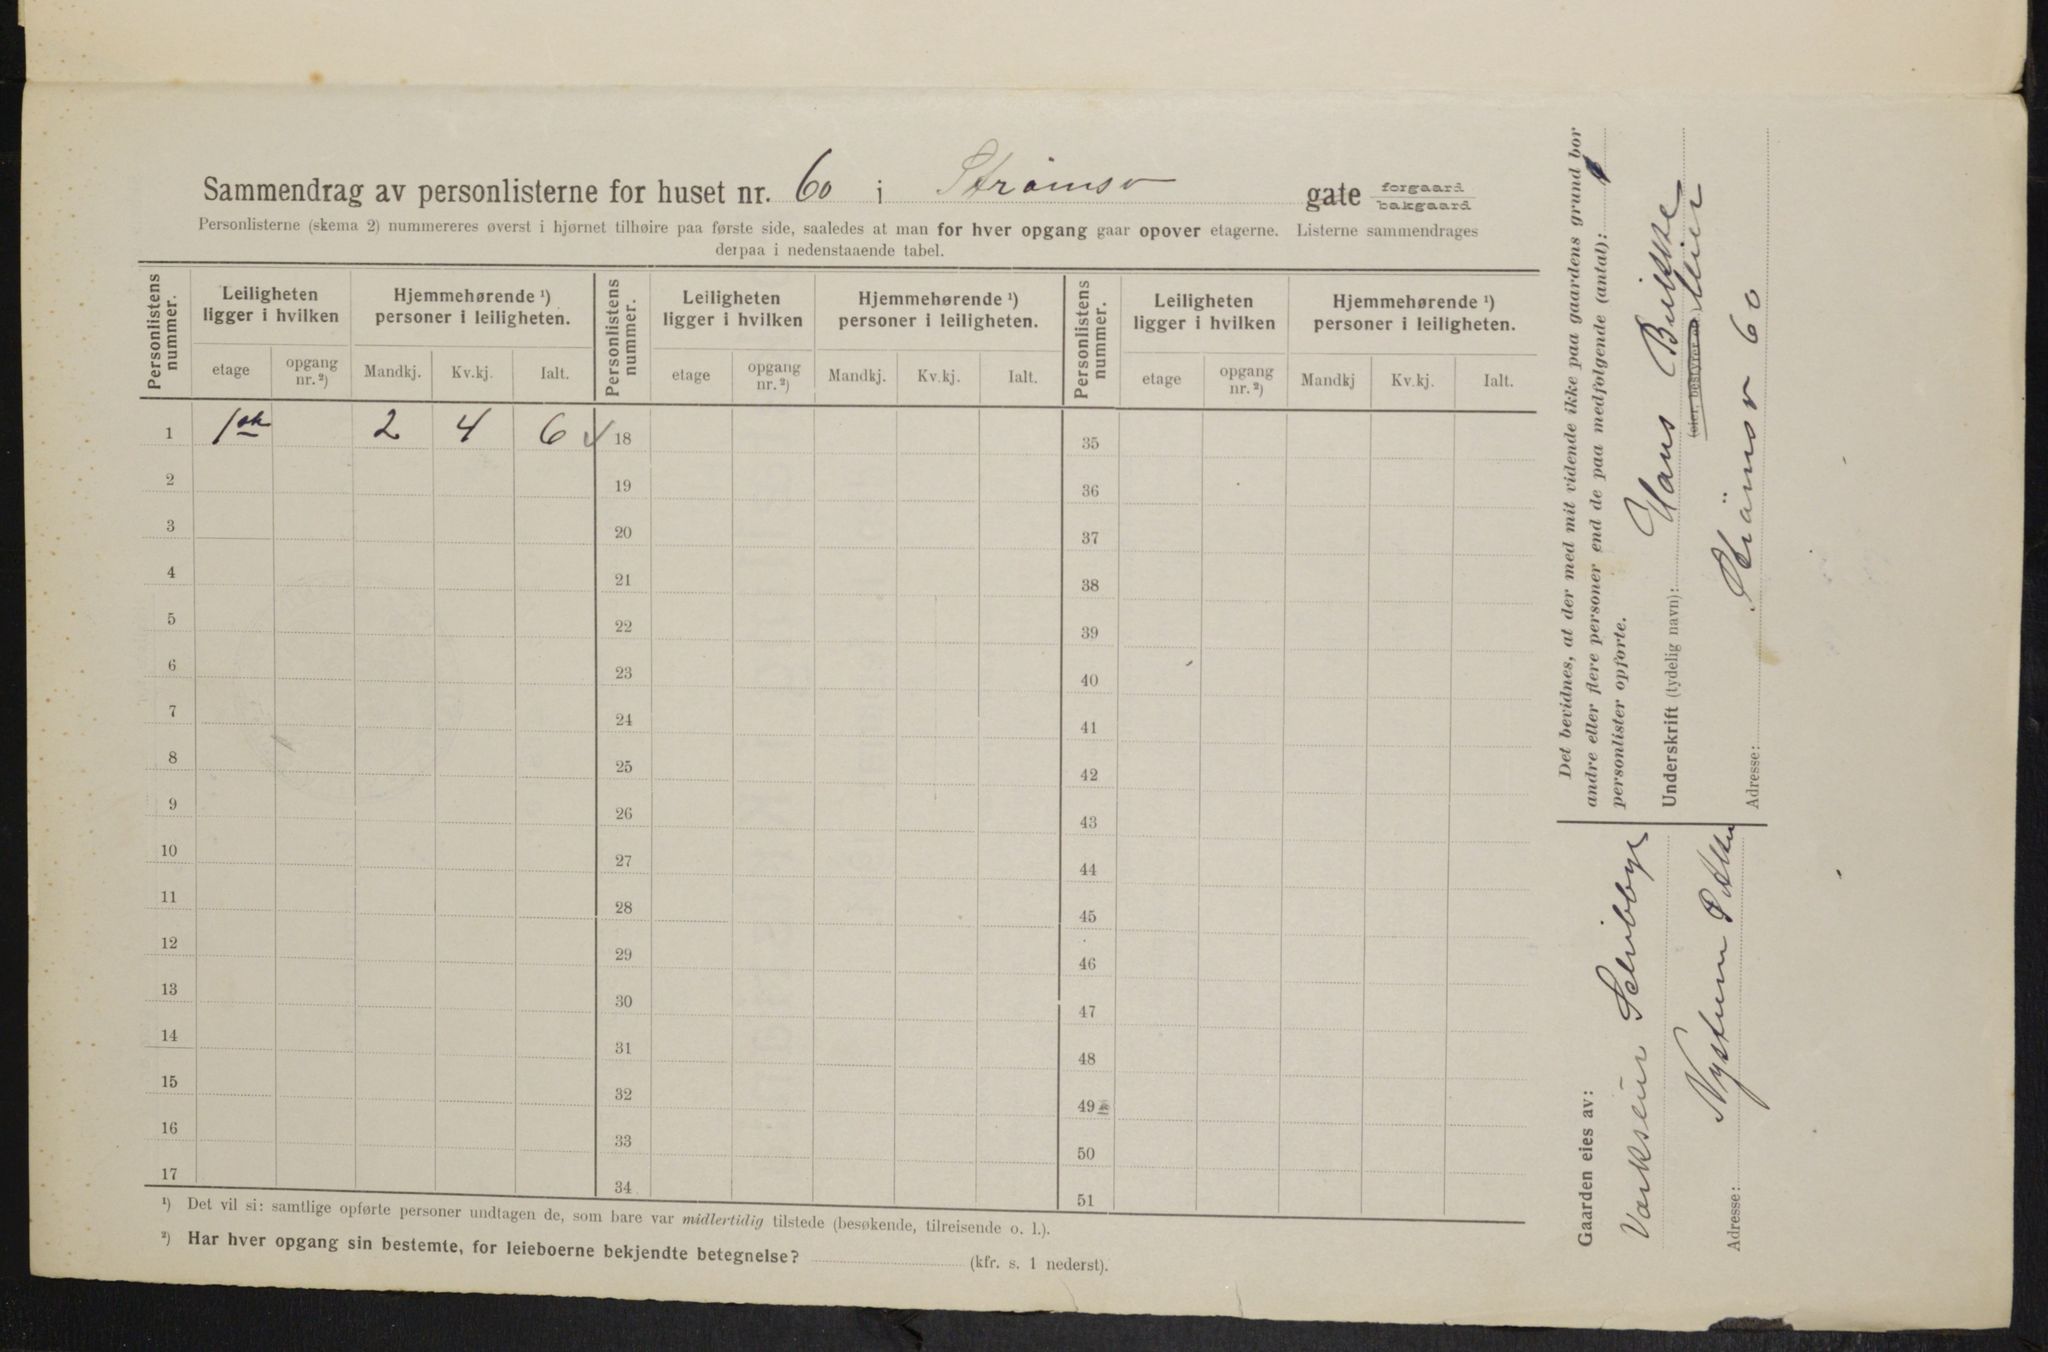 Sammendrag av personlisterne for huset nr. 60 i Strömsv gate forgaard bakgaard
Personlisterne (skema 2) nummereres øverst i hjørnet tilhøire paa første side, saaledes at man for hver opgang gaar opover etagerne. Listerne sammendrages
derpaa i nedenstaaende tabel.
Personlistens nummer. Leiligheten ligger i hvilken Hjemmehørende ¹) personer i leiligheten. Personlistens nummer. Leiligheten ligger i hvilken Hjemmehørende ¹) personer i leiligheten. Personlistens nummer. Leiligheten ligger i hvilken Hjemmehørende ¹) personer i leiligheten.
etage opgang nr. ²) Mandkj. Kv.kj. Ialt. etage opgang nr. ²) Mandkj. Kv.kj. Ialt. etage opgang nr. ²) Mandkj Kv.kj. Ialt.
1 1ste 2 4 6 18 35
2 19 36
3 20 37
4 21 38
5 22 39
6 23 40
7 24 41
8 25 42
9 26 43
10 27 44
11 28 45
12 29 46
13 30 47
14 31 48
15 32 49
16 33 50
17 34 51
¹) Det vil si: samtlige opførte personer undtagen de, som bare var midlertidig tilstede (besøkende, tilreisende o. l.).
²) Har hver opgang sin bestemte, for leieboerne bekjendte betegnelse? (kfr. s. 1 nederst).
Det bevidnes, at der med mit vidende ikke paa gaardens grund bor
andre eller flere personer end de paa medfølgende (antal): 1
personlister opførte.
Underskrift (tydelig navn): Hans
(eier, bestyrer
Adresse: Strömsv 60
Gaarden eies av:
Adresse: